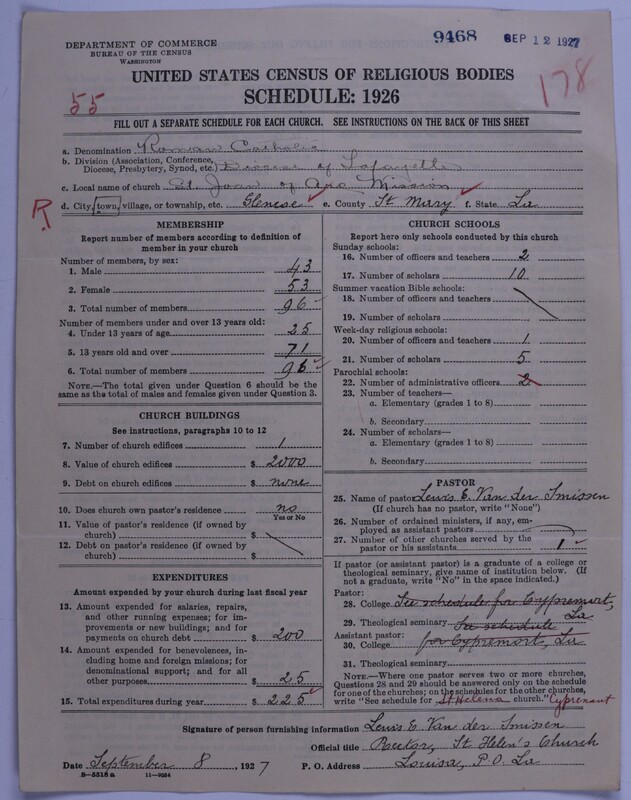 DEPARTMENT OF COMMERCE
BUREAU OF THE CENSUS
WASHINGTON
9468 SEP 12 1927
UNITED STATES CENSUS OF RELIGIOUS BODIES
SCHEDULE: 1926
55
178
FILL OUT A SEPARATE SCHEDULE FOR EACH CHURCH. SEE INSTRUCTIONS ON THE BACK OF THIS SHEET
a. Denomination Roman Catholic
b. Division (Association, Conference, Diocese, Presbytery, Synod, etc.) Diocese of Lafayette
c. Local name of church St. Joan of Arc Mission
R d. City, town, village, or township, etc. Glencoe e. County St Mary f. State La
MEMBERSHIP
Report number of members according to definition of member in your church
Number of members, by sex:
1. Male 43
2. Female 53
3. Total number of members 96
Number of members under and over 13 years old:
4. Under 13 years of age 25
5. 13 years old and over 71
6. Total number of members 96
NOTE.—The total given under Question 6 should be the same as the total of males and females given under Question 3.
CHURCH BUILDINGS
See instructions, paragraphs 10 to 12
7. Number of church edifices 1
8. Value of church edifices $ 2000
9. Debt on church edifices $ none
10. Does church own pastor's residence no
Yes or No
11. Value of pastor's residence (if owned by church) $
12. Debt on pastor's residence (if owned by church) $
EXPENDITURES
Amount expended by your church during last fiscal year
13. Amount expended for salaries, repairs, and other running expenses; for improvements or new buildings; and for payments on church debt $ 200
14. Amount expended for benevolences, including home and foreign missions; for denominational support; and for all other purposes $ 25
15. Total expenditures during year $ 225
CHURCH SCHOOLS
Report here only schools conducted by this church
Sunday schools:
16. Number of officers and teachers 2
17. Number of scholars 10
Summer vacation Bible schools:
18. Number of officers and teachers
19. Number of scholars
Week-day religious schools:
20. Number of officers and teachers 1
21. Number of scholars 5
Parochial schools:
22. Number of administrative officers 2
23. Number of teachers—
a. Elementary (grades 1 to 8)
b. Secondary
24. Number of scholars—
a. Elementary (grades 1 to 8)
b. Secondary
PASTOR
25. Name of pastor Lewis E. Van der Smissen
(If church has no pastor, write "None")
26. Number of ordained ministers, if any, employed as assistant pastors
27. Number of other churches served by the pastor or his assistants 1
If pastor (or assistant pastor) is a graduate of a college or theological seminary, give name of institution below. (If not a graduate, write "No" in the space indicated.)
Pastor:
28. College See schedule for Cypremort, La
29. Theological seminary See schedule
Assistant pastor:
30. College for Cypremort, La
31. Theological seminary
NOTE.—Where one pastor serves two or more churches, Questions 28 and 29 should be answered only on the schedule for one of the churches; on the schedules for the other churches, write "See schedule for St Helena church." Cypremort
Signature of person furnishing information Lewis E. Van der Smissen
Official title Rector, St Helen's Church
Date September 8, 1927 P. O. Address Louisa, P.O. La
8—5518 a 11—9334